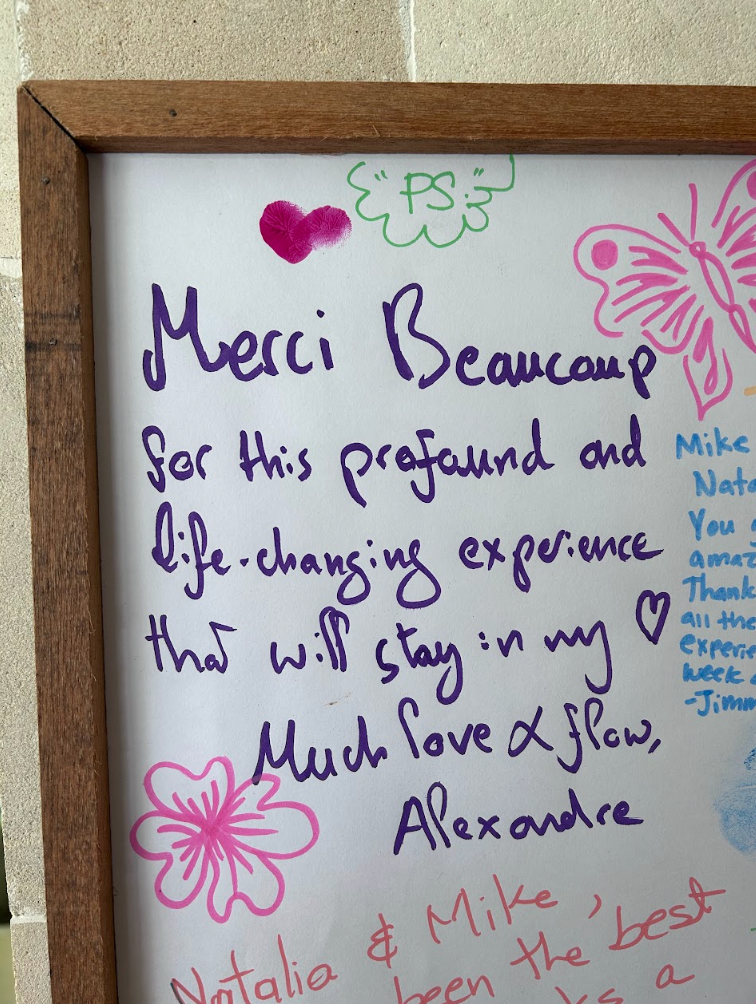 "PS:"
Merci Beaucoup
for this profound and
life-changing experience
that will stay in my ♡
Much love & flow,
Alexandre
Mike
You
Thank
all the
week
Natalia & Mike,
been the best
a